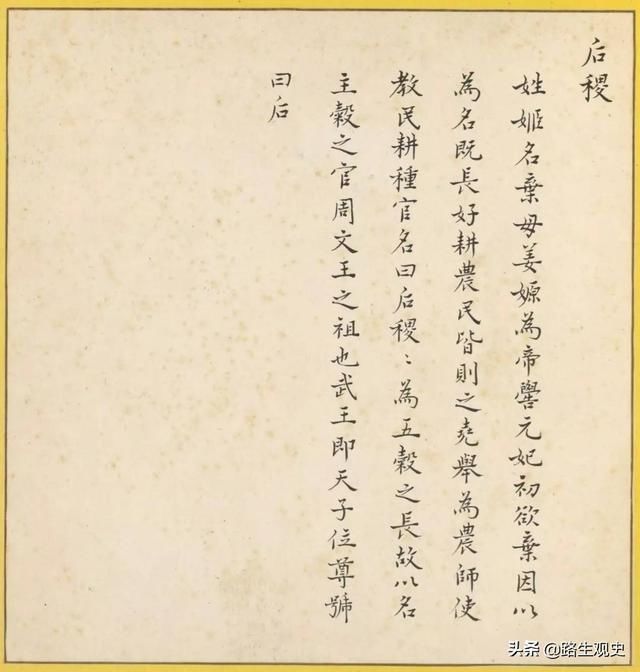 后稷
姓姬名棄母姜嫄為帝嚳元妃初欲棄因以
為名既長好耕農民皆則之堯舉為農師使
教民耕種官名曰后稷〻為五穀之長故以名
主穀之官周文王之祖也武王即天子位尊號
曰后
头条 @路生观史